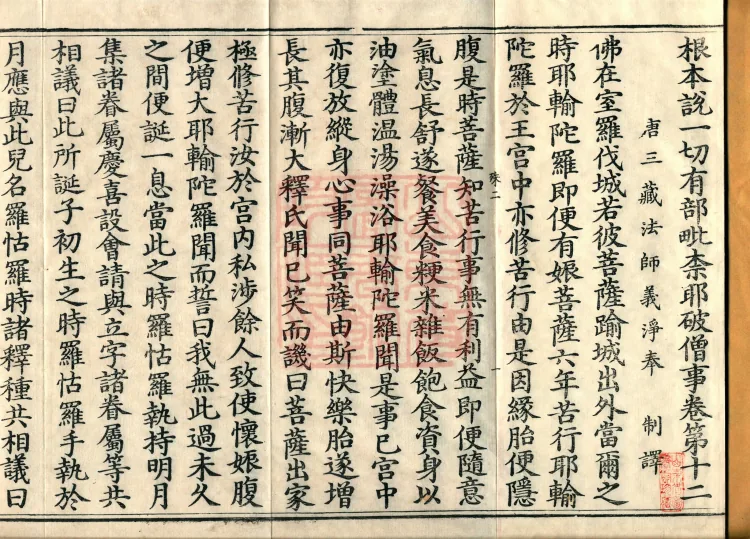 根本說一切有部毗柰耶破僧事卷第十二
唐三藏法師義淨奉 制譯
佛在室羅伐城若彼菩薩踰城出外當爾之
時耶輸陀羅即便有娠菩薩六年苦行耶輸
陀羅於王宮中亦修苦行由是因緣胎便隱
殊二
腹是時菩薩知苦行事無有利益即便隨意
氣息長舒遂餐美食粳米雜飯飽食資身以
油塗體温湯澡浴耶輸陀羅聞是事已宮中
亦復放縱身心事同菩薩由斯快樂胎遂增
長其腹漸大釋氏聞已笑而譏曰菩薩出家
極修苦行汝於宮內私涉餘人致使懷娠腹
便增大耶輸陀羅聞而誓曰我無此過未久
之間便誕一息當此之時羅怙羅執持明月
集諸眷屬慶喜設會請與立字諸眷屬等共
相議曰此所誕子初生之時羅怙羅手執於
月應與此兒名羅怙羅時諸釋種共相議曰